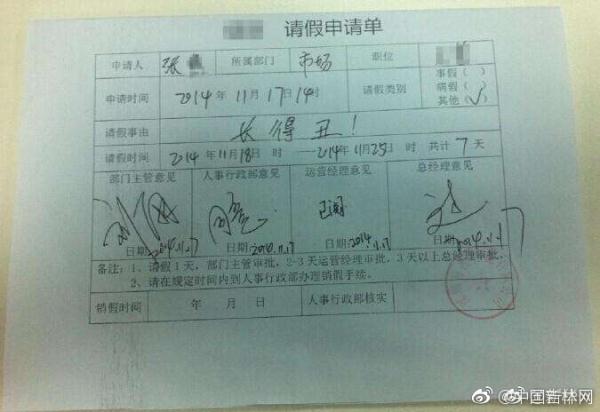 请假申请单
申请人 张 所属部门 市场 职位
申请时间 2014年11月17日14时 请假类别 事假( ) 病假( ) 其他(√)
请假事由 长得丑!
请假时间 2014年11月18日 时——2014年11月25日 时 共计7天
部门主管意见 人事行政部意见 运营经理意见 总经理意见
日期:2014.11.17 日期:2014.11.17 日期:2014.11.17 日期:2014.11.17
备注:1、请假1天,部门主管审批,2-3天运营经理审批,3天以上总经理审批。
2、请在规定时间内到人事行政部办理销假手续。
销假时间 年 月 日 人事行政部核实
@中国吉林网